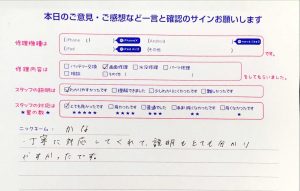 本日のご意見・ご感想など一言と確認のサインお願いします
修理機種は
iPhone
iPad
Android
その他
修理内容は
バッテリー交換 ☑画面修理 水没修理 パーツ修理
その他
をしてもらいました。
スタッフの説明は
☑わかりやすかったです 理解できました 少しわかりにくかった 難しかった
スタッフの対応は
★星の数★
☑とても良かったです 良かったです 普通でした
★★★★★ ★★★★ ★★★ ★★ ★
ニックネーム: かな
丁寧に対応してくれて、説明もとても分かり
やすかったです。